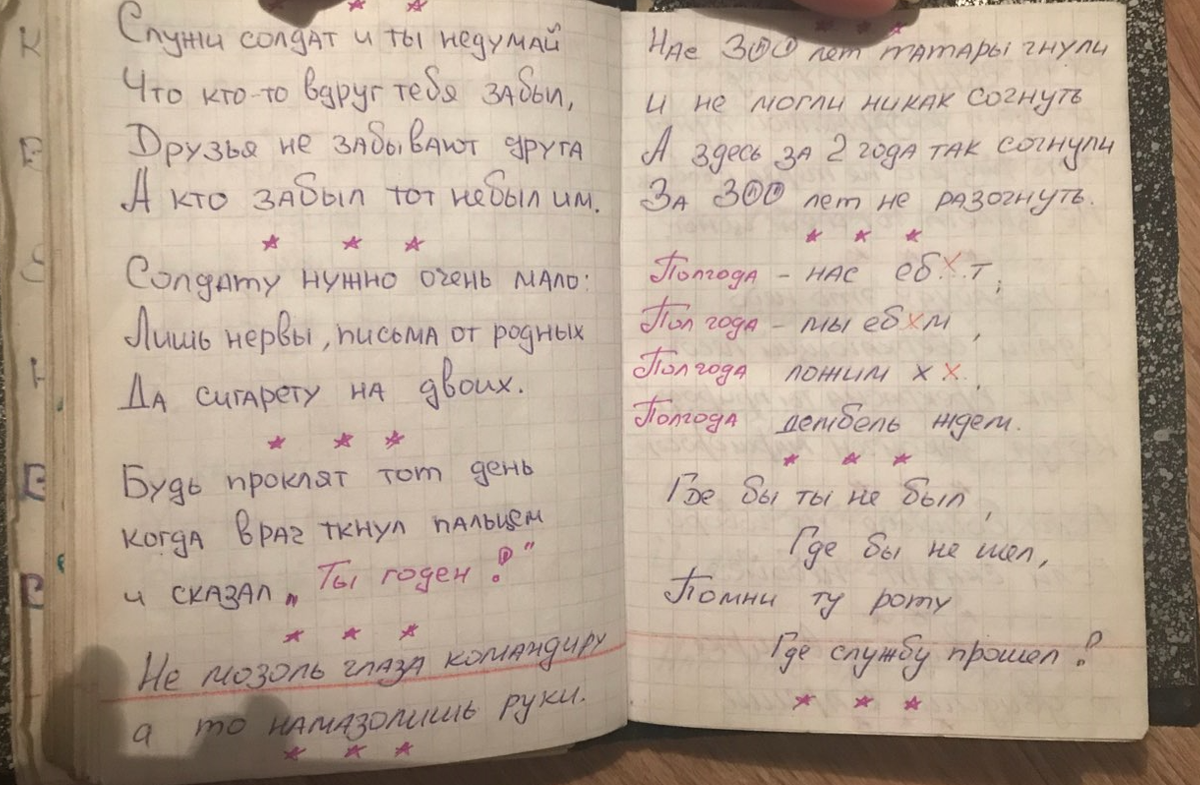 Служи солдат и ты недумай
Что кто-то вдруг тебя забыл,
Друзья не забывают друга
А кто забыл тот небыл им.
Солдату нужно очень мало:
Лишь нервы, письма от родных
Да сигарету на двоих.
Будь проклят тот день
когда враг ткнул пальцем
и сказал „Ты годен!"
Не мозоль глаза командиру
а то намазолишь руки.
Нас 300 лет татары гнули
и не могли никак согнуть
А здесь за 2 года так согнули
За 300 лет не разогнуть.
Полгода - нас еб.х.т;
Пол года - мы ебхм,
Полгода ложим х х.,
Полгода дембель ждем.
Где бы ты не был,
Где бы не шел,
Помни ту роту
Где службу прошел!